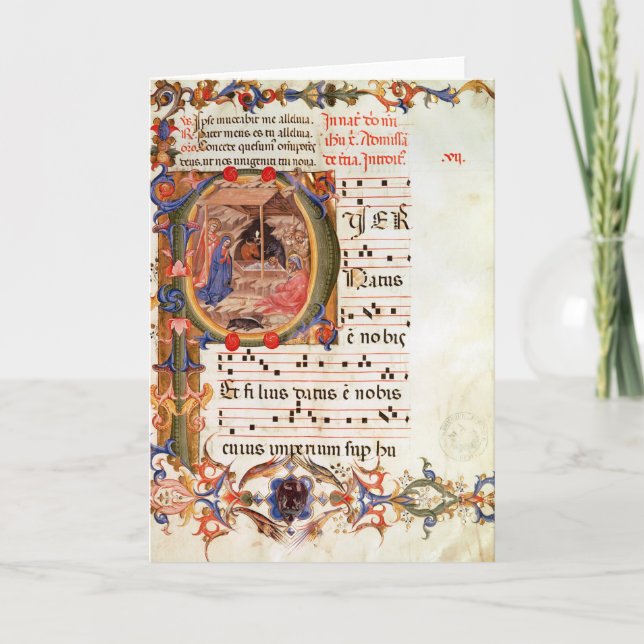 Vs. Ipse invocabit me alleluia.
R. Pater meus es tu alleluia.
oro. Concede quesumus omnipotens
deus. ut nos unigeniti tui nova.
In nat. dni
ihu x. Ad missa
de tcia. Introit.
.xvij.
PUER
Natus
ē nobis
Et fi lius datus ē nobis
cuius imperium sup hu